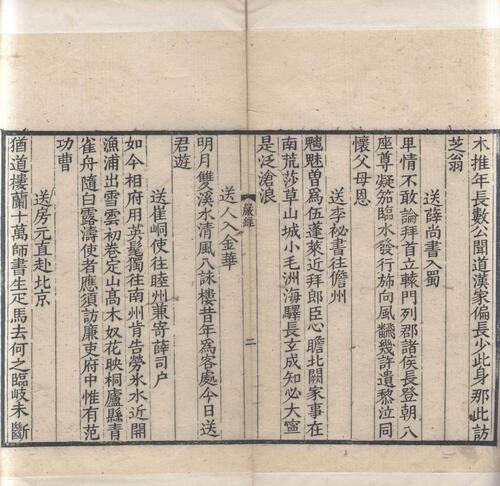 木推年長數公聞道漢家偏長少此身那此訪
芝翁
送薛尚書入蜀
卑情不敢論拜首立轅門列郡諸侯長登朝八
座尊凝笳臨水發行旆向風飜幾許遺黎泣同
懷父母恩
送李秘書往儋州
魑魅曾爲伍蓬萊近拜郎臣心瞻北闕家事在
南荒莎草山城小毛洲海驛長玄成知必大寧
是泛滄浪
嚴維
二
送人入金華
明月雙溪水清風八詠樓昔年爲客處今日送
君遊
送崔峒使往睦州兼寄薛司户
如今相府用英髦獨往南州肯告勞氷水近開
漁浦出雪雲初卷定山髙木奴花映桐廬縣青
雀舟隨白露濤使者應須訪廉吏府中惟有范
功曹
送房元直赴北京
猶道樓蘭十萬師書生疋馬去何之臨岐未斷